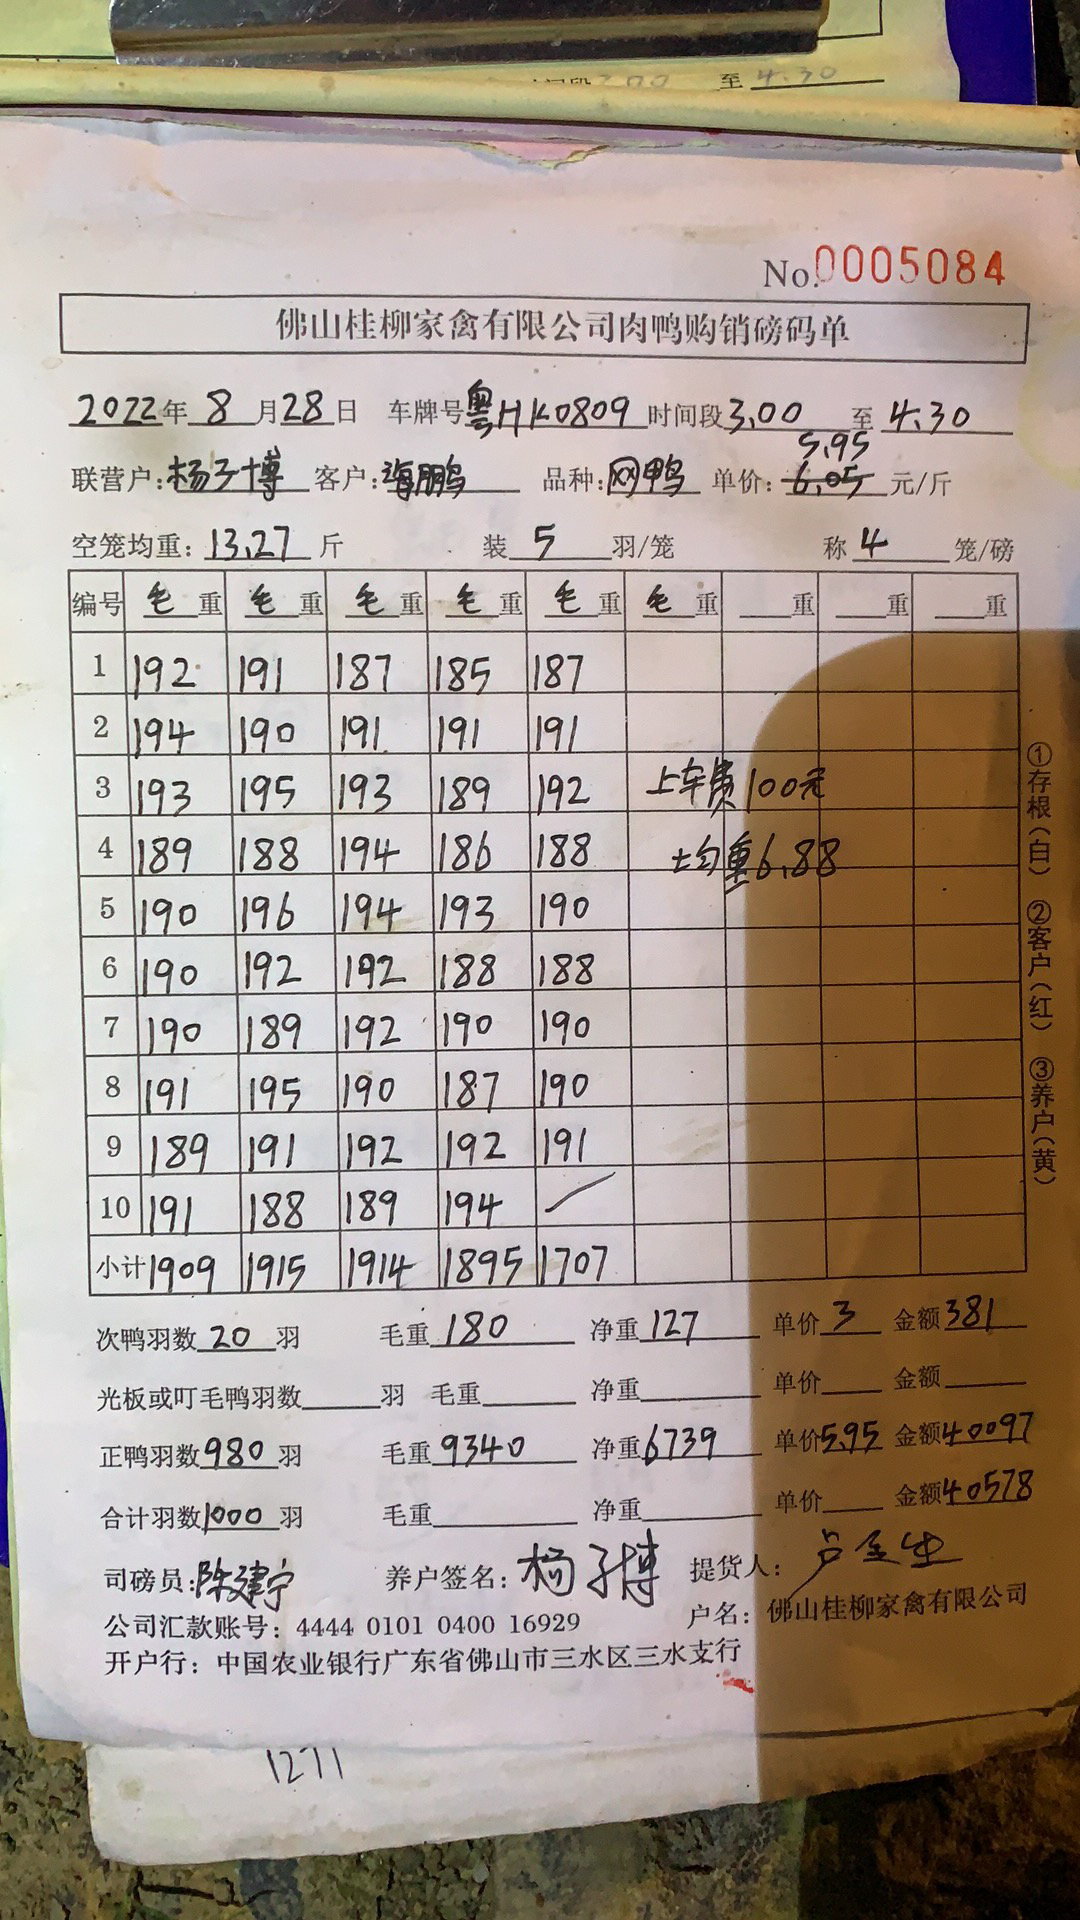 至 4.30
No.0005084
佛山桂柳家禽有限公司肉鸭购销磅码单
2022年 8 月28日 车牌号粤HK0809 时间段3.00 至 4.30
5.95
联营户:杨子博 客户:海鹏 品种:网鸭 单价:6.05元/斤
空笼均重:13.27斤 装 5 羽/笼 称 4 笼/磅
编号 毛重 毛重 毛重 毛重 毛重 毛重 重 重 重
1 192 191 187 185 187
2 194 190 191 191 191
3 193 195 193 189 192 上车费100元
4 189 188 194 186 188 均重6.88
5 190 196 194 193 190
6 190 192 192 188 188
7 190 189 192 190 190
8 191 195 190 187 190
9 189 191 192 192 191
10 191 188 189 194
小计 1909 1915 1914 1895 1707
①存根(白) ②客户(红) ③养户(黄)
次鸭羽数20羽 毛重180 净重127 单价3 金额381
光板或叮毛鸭羽数 羽 毛重 净重 单价 金额
正鸭羽数980羽 毛重9340 净重6739 单价5.95 金额40097
合计羽数1000羽 毛重 净重 单价 金额40578
司磅员:陈建宁 养户签名:杨子博 提货人:
公司汇款账号:4444 0101 0400 16929 户名:佛山桂柳家禽有限公司
开户行:中国农业银行广东省佛山市三水区三水支行
1271